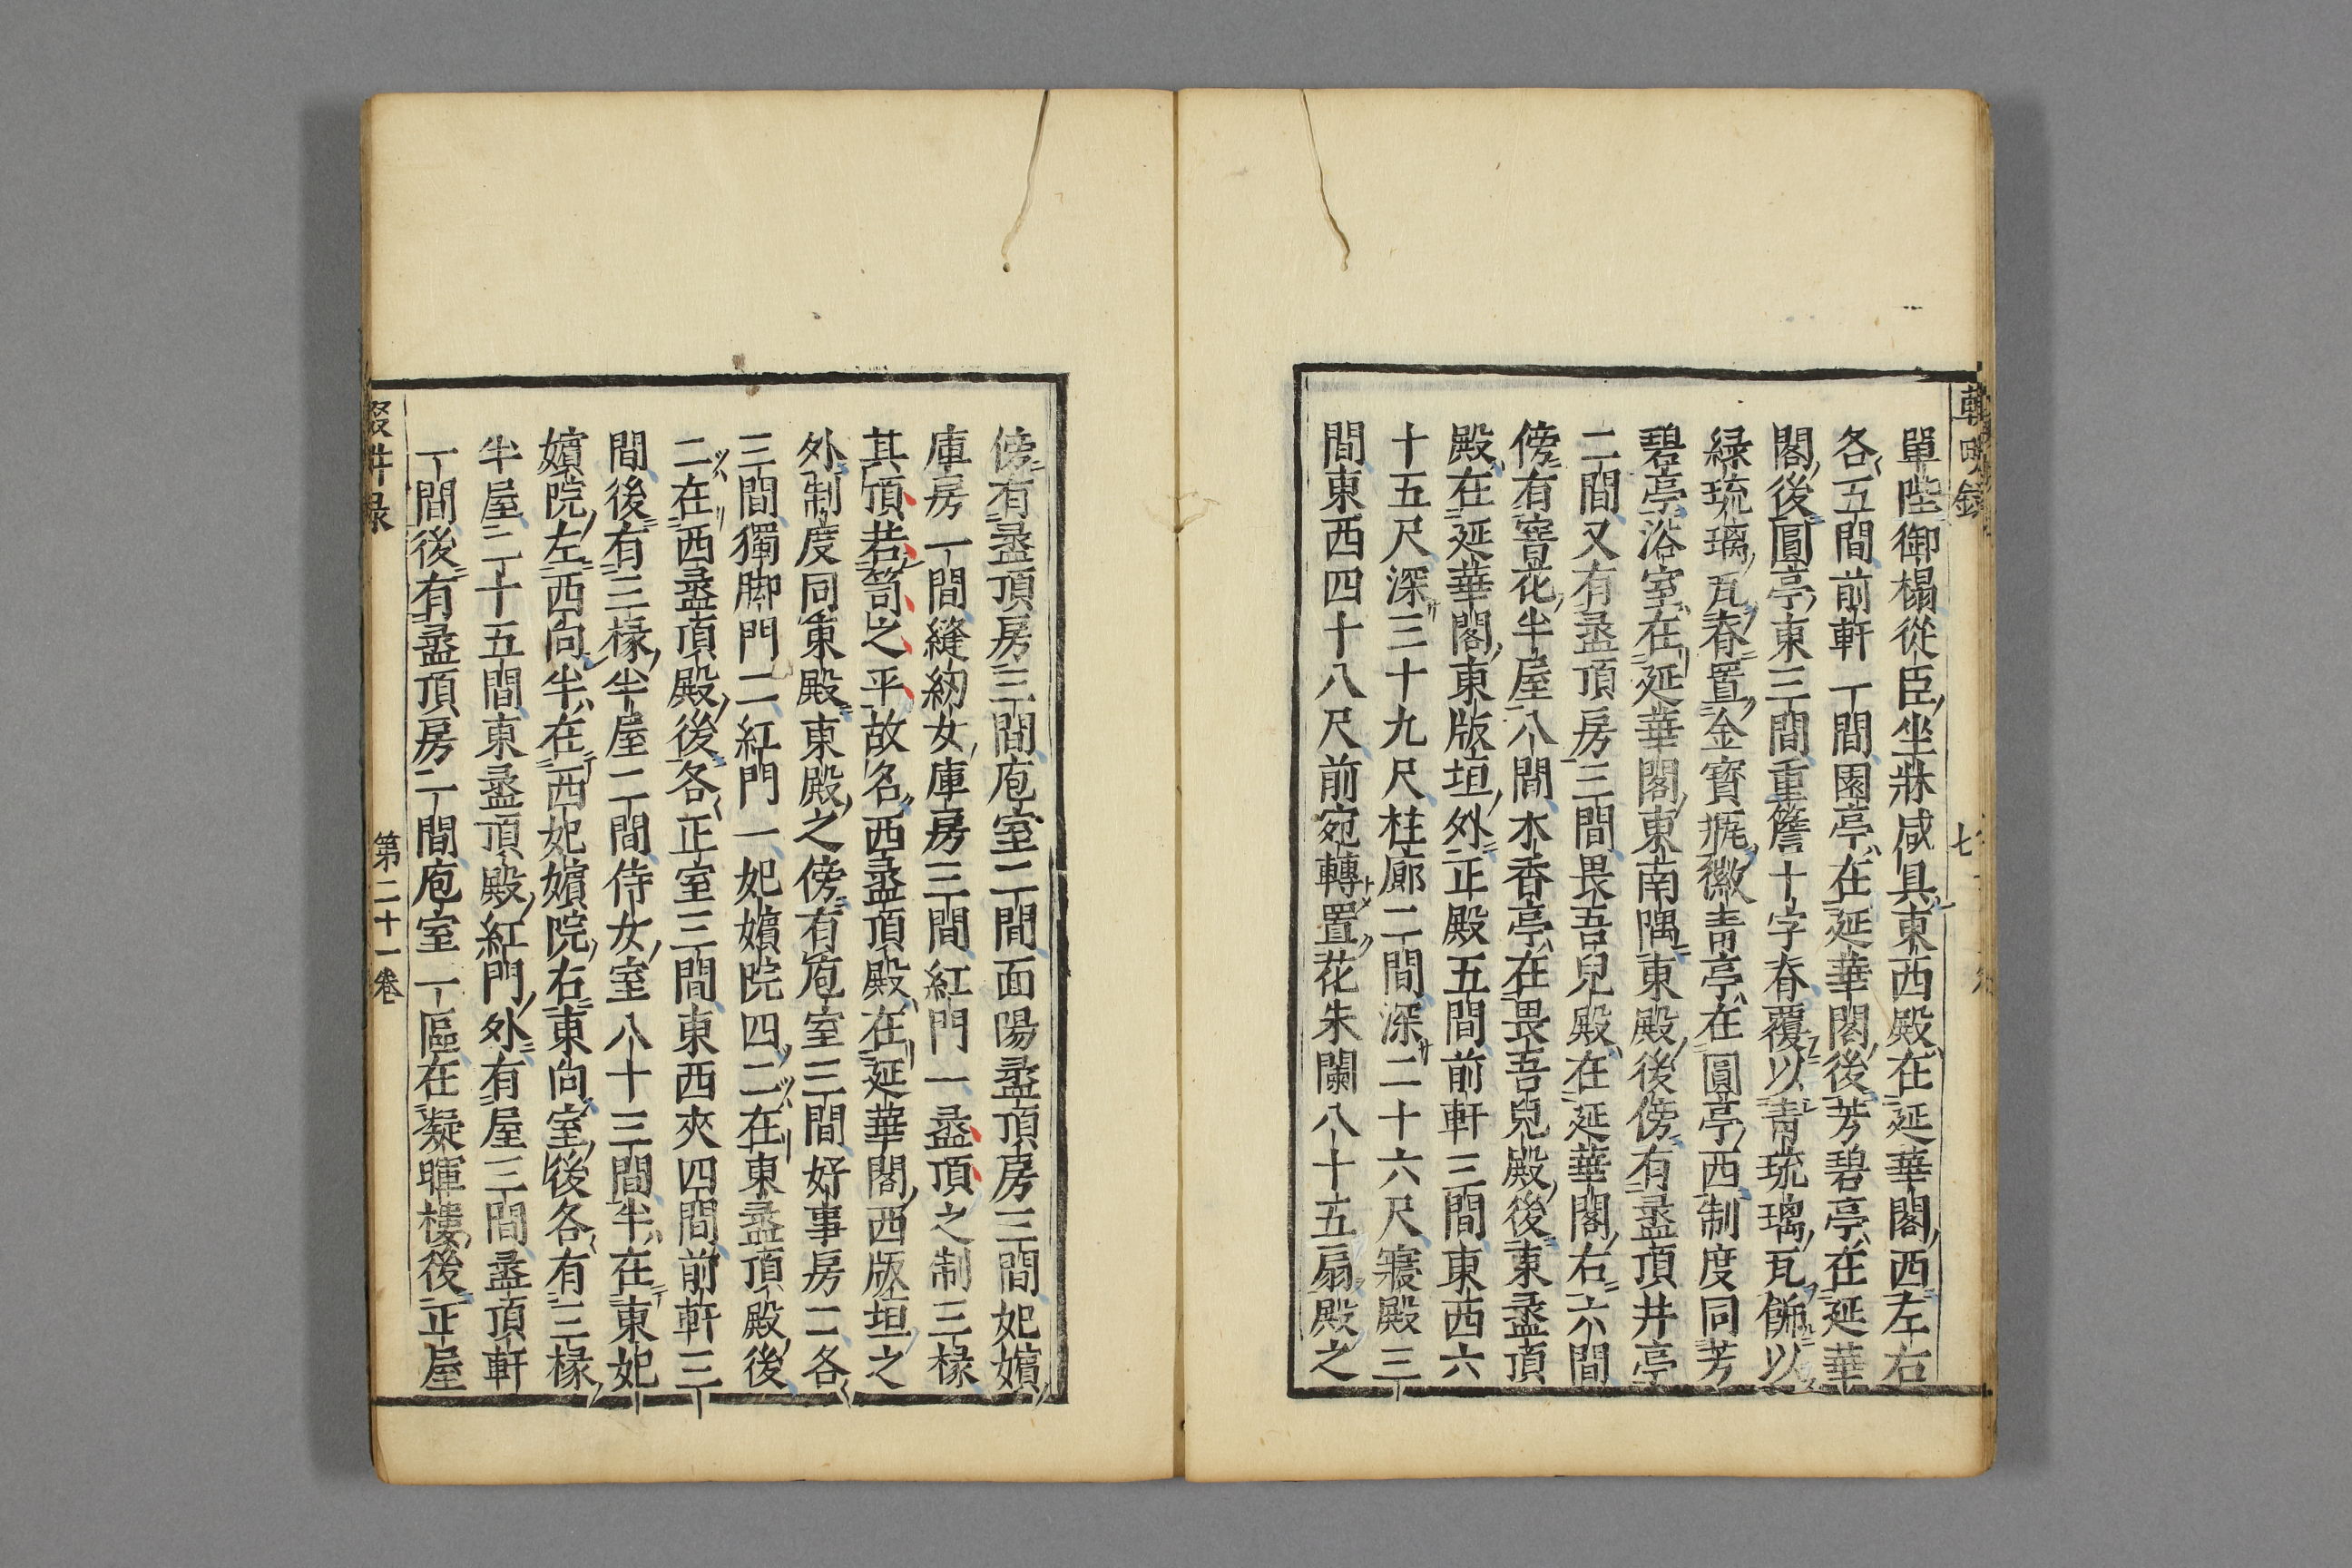 單陛御榻從臣坐牀咸具東西殿在延華閣西左右
各五間前軒一間園亭在延華閣後芳碧亭在延華
閣後圓亭東三間重簷十字脊覆以青琉璃瓦餙以
緑琉璃瓦脊置金寳瓶徽青亭在圓亭西制度同芳
碧亭浴室在延華閣東南隅東殿後傍有盝頂井亭
二間又有盝頂房三間畏吾兒殿在延華閣右六間
傍有窨花半屋八間木香亭在畏吾兒殿後東盝頂
殿在延華閣東版垣外正殿五間前軒三間東西六
十五尺深三十九尺柱廊二間深二十六尺寢殿三
間東西四十八尺前宛轉置花朱闌八十五扇殿之
七
傍有盝頂房三間庖室二間面陽盝頂房三間妃嬪
庫房一間縫紉女庫房三間紅門一盝頂之制三椽
其頂若笥之平故名西盝頂殿在延華閣西版垣之
外制度同東殿東殿之傍有庖室三間好事房二各
三間獨脚門二紅門一妃嬪院四二在東盝頂殿後
二在西盝頂殿後各正室三間東西夾四間前軒三
間後有三椽半屋二間侍女室八十三間半在東妃
嬪院左西向半在西妃嬪院右東向室後各有三椽
半屋二十五間東盝頂殿紅門外有屋三間盝頂軒
一間後有盝頂房二間庖室一區在凝暉樓後正屋
第二十一卷